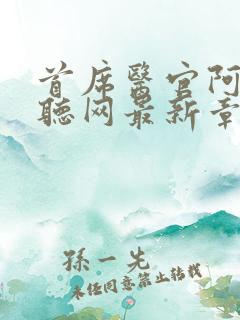 首席醫官阿
聽网最新章
孫一先
未经同意禁止转载